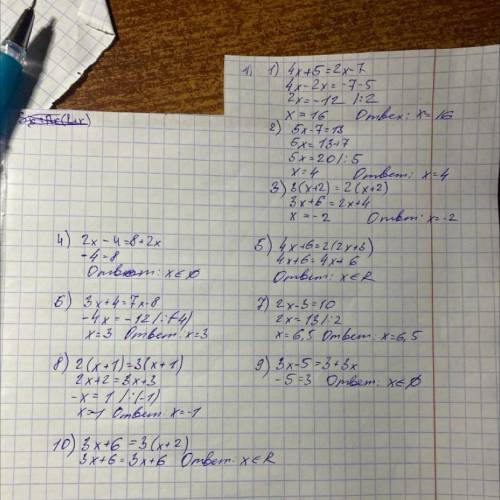 1) 1) 4x+5=2x-7
4x-2x=-7-5
2x=-12 /:2
x=16 Ответ: x=16
2) 5x-7=13
5x=13+7
5x=20/:5
x=4 Ответ: x=4
3) 3(x+2)=2(x+2)
3x+6=2x+4
x=-2 Ответ: x=-2
4) 2x-4=8+2x
-4=8
Ответ: x∈ø
5) 4x+6=2(2x+3)
4x+6=4x+6
Ответ: x∈R
6) 3x+4=7x-8
-4x=-12/:(-4)
x=3 Ответ: x=3
7) 2x-3=10
2x=13/:2
x=6,5 Ответ: x=6,5
8) 2(x+1)=3(x+1)
2x+2=3x+3
-x=1 /:(-1)
x=-1 Ответ: x=-1
9) 3x-5=3+3x
-5=3 Ответ: x∈ø
10) 3x+6=3(x+2)
3x+6=3x+6 Ответ: x∈R